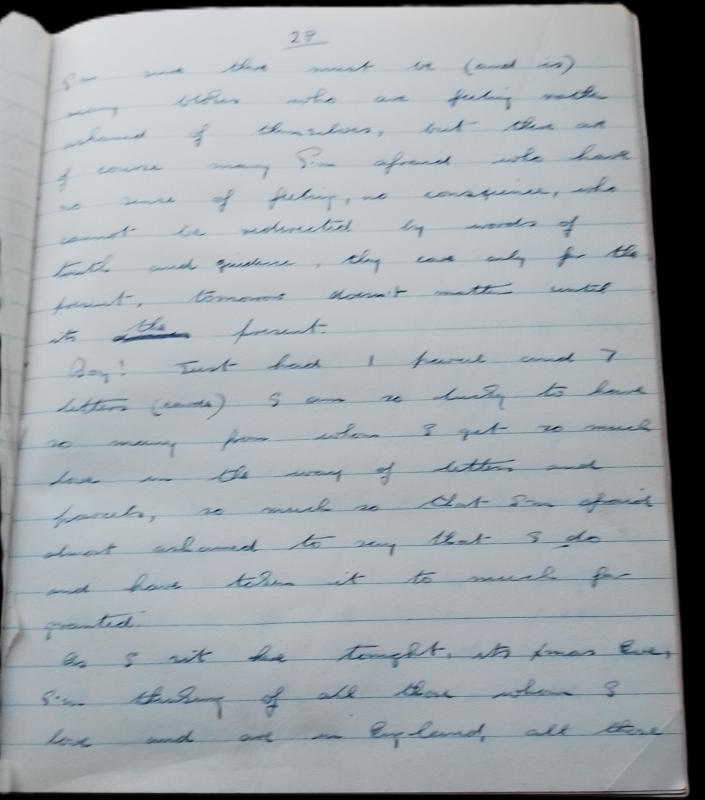 29
I'm sure there must be (and is)
many blokes who are feeling rather
ashamed of themselves, but there are
of course many I'm afraid who have
no sense of feeling, no consquience, who
cannot be redirected by words of
truth and guidence, they care only for the
present, tomorrow doesn't matter until
its the present.
Boy! Just had 1 parcel and 7
letters (cards) I am so lucky to have
so many from whom I get so much
love in the way of letters and
parcels, so much so that I'm afraid
almost ashamed to say that I do
and have taken it to much for
granted.
As I sit here tonight, its Xmas Eve,
I'm thinking of all those whom I
love and are in England, all those